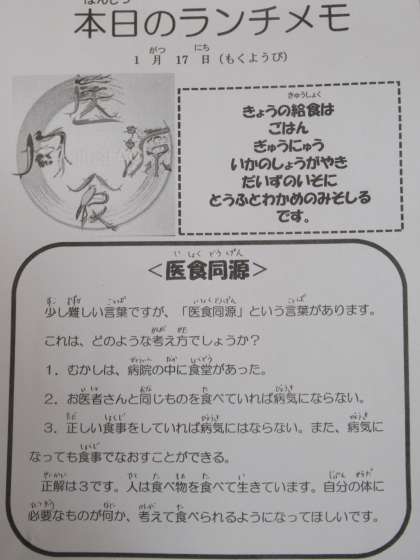 本日のランチメモ
がつ にち
1 月 17 日 (もくようび)
医
同 源
食
きゅうしょく
きょうの給食は
ごはん
ぎゅうにゅう
いかのしょうがやき
だいずのいそに
とうふとわかめのみそしる
です。
い しょく どう げん
<医食同源>
少し難しい言葉ですが、「医食同源」という言葉があります。
これは、どのような考え方でしょうか?
1．むかしは、病院の中に食堂があった。
2．お医者さんと同じものを食べていれば病気にならない。
3．正しい食事をしていれば病気にはならない。また、病気に
なっても食事でなおすことができる。
正解は3です。人は食べ物を食べて生きています。自分の体に
必要なものが何か、考えて食べられるようになってほしいです。